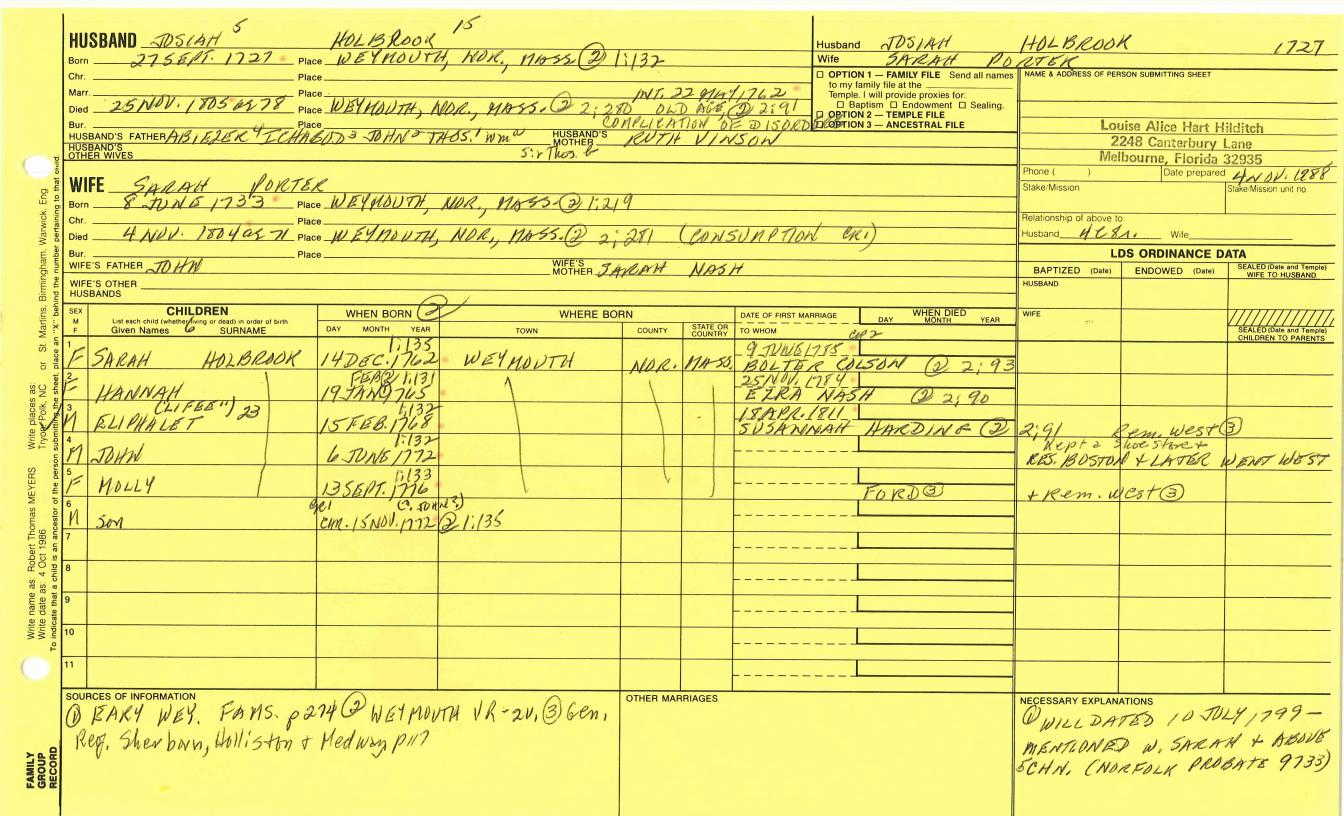 HUSBAND JOSIAH 5 HOLBROOK 15
Born 27 SEPT. 1727 Place WEYMOUTH, NOR., MASS. ② 1:132
Chr. Place
Marr. Place INT. 22 MAY 1762
Died 25 NOV. 1805 æ 78 Place WEYMOUTH, NOR., MASS. ② 2:280 OLD AGE, ② 2:91
Bur. Place COMPLICATION OF DISORDERS
HUSBAND'S FATHER ABIEZER 4 ICHABOD 3 JOHN 2 THOS. 1 Wm a HUSBAND'S MOTHER RUTH VINSON
HUSBAND'S OTHER WIVES Sir Thos. b
Husband JOSIAH HOLBROOK 1727
Wife SARAH PORTER
☐ OPTION 1 — FAMILY FILE Send all names
to my family file at the
Temple. I will provide proxies for:
☐ Baptism ☐ Endowment ☐ Sealing.
☐ OPTION 2 — TEMPLE FILE
☐ OPTION 3 — ANCESTRAL FILE
NAME & ADDRESS OF PERSON SUBMITTING SHEET
Louise Alice Hart Hilditch
2248 Canterbury Lane
Melbourne, Florida 32935
Phone ( ) Date prepared 4 NOV. 1988
Stake/Mission Stake/Mission unit no.
Relationship of above to
Husband Wife
WIFE SARAH PORTER
Born 8 JUNE 1733 Place WEYMOUTH, NOR., MASS. ② 1:219
Chr. Place
Died 4 NOV. 1804 æ 71 Place WEYMOUTH, NOR., MASS. ② 2:281 (CONSUMPTION CR1)
Bur. Place
WIFE'S FATHER JOHN WIFE'S MOTHER SARAH NASH
WIFE'S OTHER HUSBANDS
LDS ORDINANCE DATA
BAPTIZED (Date) ENDOWED (Date) SEALED (Date and Temple) WIFE TO HUSBAND
HUSBAND
WIFE
SEALED (Date and Temple) CHILDREN TO PARENTS
SEX M F
CHILDREN
List each child (whether living or dead) in order of birth
Given Names 6 SURNAME
WHEN BORN ②
DAY MONTH YEAR
WHERE BORN
TOWN COUNTY STATE OR COUNTRY
DATE OF FIRST MARRIAGE
TO WHOM
WHEN DIED
DAY MONTH YEAR
1 F SARAH HOLBROOK 1:135 14 DEC. 1762 WEYMOUTH NOR. MASS. 9 JUNE 1785 BOLTER COLSON ② 2:93
2 F HANNAH FEB ② 1:131 19 JAN ① 1765 25 NOV. 1784 EZRA NASH ② 2:90
3 M ELIPHALET ("LIFEE") 23 1:132 15 FEB. 1768 18 APR. 1811 SUSANNAH HARDING ② 2:91 Rem. West ③
4 M JOHN 1:132 6 JUNE 1772 Kept a Shoe Store + RES. BOSTON & LATER WENT WEST
5 F MOLLY 1:133 13 SEPT. 1776 FORD ③ + Rem. West ③
6 M son 15 NOV. 1772 ② 1:135
7
8
9
10
11
SOURCES OF INFORMATION
① EARY WEY. FAMS. p274 ② WEYMOUTH VR-2V, ③ Gen.
Reg. Sherborn, Holliston + Medway p117
OTHER MARRIAGES
NECESSARY EXPLANATIONS
① WILL DATED 10 JULY 1799 –
MENTIONED W. SARAH + ABOVE
5 CHN. (NORFOLK PROBATE 9733)
Write name as: Robert Thomas MEYERS Write places as: Tryon, Polk, NC or St Martins, Birmingham, Warwick, Eng.
Write date as: 4 Oct 1986
To indicate that a child is an ancestor of the person submitting the sheet, place an "X" behind the number pertaining to that child.
FAMILY GROUP RECORD